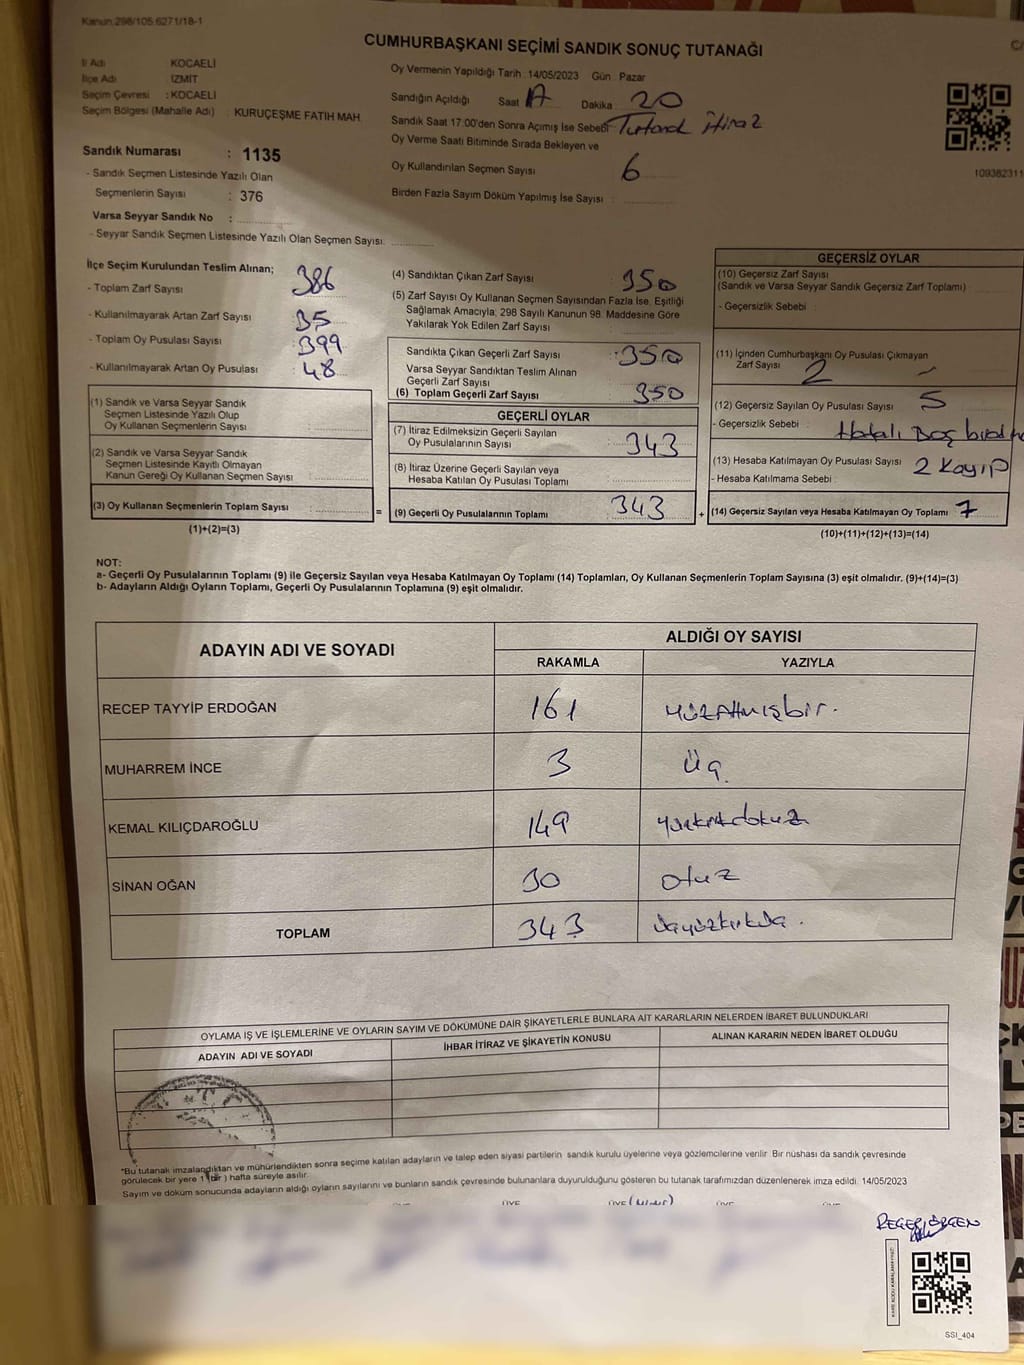 Kanun:298/105.6271/18-1
CUMHURBAŞKANI SEÇİMİ SANDIK SONUÇ TUTANAĞI
İl Adı KOCAELİ
İlçe Adı İZMİT
Seçim Çevresi : KOCAELİ
Seçim Bölgesi (Mahalle Adı) : KURUÇEŞME FATIH MAH.
Sandık Numarası : 1135
- Sandık Seçmen Listesinde Yazılı Olan
Seçmenlerin Sayısı : 376
Varsa Seyyar Sandık No :
- Seyyar Sandık Seçmen Listesinde Yazılı Olan Seçmen Sayısı:
Oy Vermenin Yapıldığı Tarih :14/05/2023 Gün : Pazar
Sandığın Açıldığı Saat Dakika 20
Sandık Saat 17:00'den Sonra Açımış İse Sebebi Tutanak İtiraz
Oy Verme Saati Bitiminde Sırada Bekleyen ve
Oy Kullandırılan Seçmen Sayısı 6
Birden Fazla Sayım Döküm Yapılmış İse Sayısı :
109382311
İlçe Seçim Kurulundan Teslim Alınan;
- Toplam Zarf Sayısı : 386
- Kullanılmayarak Artan Zarf Sayısı : 35
- Toplam Oy Pusulası Sayısı : 399
- Kullanılmayarak Artan Oy Pusulası : 48
(1) Sandık ve Varsa Seyyar Sandık
Seçmen Listesinde Yazılı Olup
Oy Kullanan Seçmenlerin Sayısı :
(2) Sandık ve Varsa Seyyar Sandık
Seçmen Listesinde Kayıtlı Olmayan
Kanun Gereği Oy Kullanan Seçmen Sayısı :
(3) Oy Kullanan Seçmenlerin Toplam Sayısı :
(1)+(2)=(3)
=
(4) Sandıktan Çıkan Zarf Sayısı : 350
(5) Zarf Sayısı Oy Kullanan Seçmen Sayısından Fazla İse, Eşitliği
Sağlamak Amacıyla; 298 Sayılı Kanunun 98. Maddesine Göre
Yakılarak Yok Edilen Zarf Sayısı :
Sandıkta Çıkan Geçerli Zarf Sayısı : 350
Varsa Seyyar Sandıktan Teslim Alınan
Geçerli Zarf Sayısı :
(6) Toplam Geçerli Zarf Sayısı : 350
GEÇERLİ OYLAR
(7) İtiraz Edilmeksizin Geçerli Sayılan
Oy Pusulalarının Sayısı : 343
(8) İtiraz Üzerine Geçerli Sayılan veya
Hesaba Katılan Oy Pusulası Toplamı :
(9) Geçerli Oy Pusulalarının Toplamı : 343
+
GEÇERSİZ OYLAR
(10) Geçersiz Zarf Sayısı
(Sandık ve Varsa Seyyar Sandık Geçersiz Zarf Toplamı) :
- Geçersizlik Sebebi :
(11) İçinden Cumhurbaşkanı Oy Pusulası Çıkmayan
Zarf Sayısı : 2
(12) Geçersiz Sayılan Oy Pusulası Sayısı : 5
- Geçersizlik Sebebi : Hatalı Boş
(13) Hesaba Katılmayan Oy Pusulası Sayısı : 2 Kayıp
- Hesaba Katılmama Sebebi :
(14) Geçersiz Sayılan veya Hesaba Katılmayan Oy Toplamı : 7
(10)+(11)+(12)+(13)=(14)
NOT:
a- Geçerli Oy Pusulalarının Toplamı (9) ile Geçersiz Sayılan veya Hesaba Katılmayan Oy Toplamı (14) Toplamları, Oy Kullanan Seçmenlerin Toplam Sayısına (3) eşit olmalıdır. (9)+(14)=(3)
b- Adayların Aldığı Oyların Toplamı, Geçerli Oy Pusulalarının Toplamına (9) eşit olmalıdır.
ADAYIN ADI VE SOYADI ALDIĞI OY SAYISI
RAKAMLA YAZIYLA
RECEP TAYYİP ERDOĞAN 161 yüzAltmışbir.
MUHARREM İNCE 3 Üç
KEMAL KILIÇDAROĞLU 149 yüzkırkdokuz
SİNAN OĞAN 30 otuz
TOPLAM 343
OYLAMA İŞ VE İŞLEMLERİNE VE OYLARIN SAYIM VE DÖKÜMÜNE DAİR ŞİKAYETLERLE BUNLARA AİT KARARLARIN NELERDEN İBARET BULUNDUKLARI
ADAYIN ADI VE SOYADI İHBAR İTİRAZ VE ŞİKAYETİN KONUSU ALINAN KARARIN NEDEN İBARET OLDUĞU
*Bu tutanak imzalandıktan ve mühürlendikten sonra seçime katılan adayların ve talep eden siyasi partilerin sandık kurulu üyelerine veya gözlemcilerine verilir. Bir nüshası da sandık çevresinde
görülecek bir yere 1 (bir) hafta süreyle asılır.
Sayım ve döküm sonucunda adayların aldığı oyların sayılarını ve bunların sandık çevresinde bulunanlara duyurulduğunu gösteren bu tutanak tarafımızdan düzenlenerek imza edildi. 14/05/2023
ÜYE ÜYE ÜYE ÜYE ÜYE
SSI_404